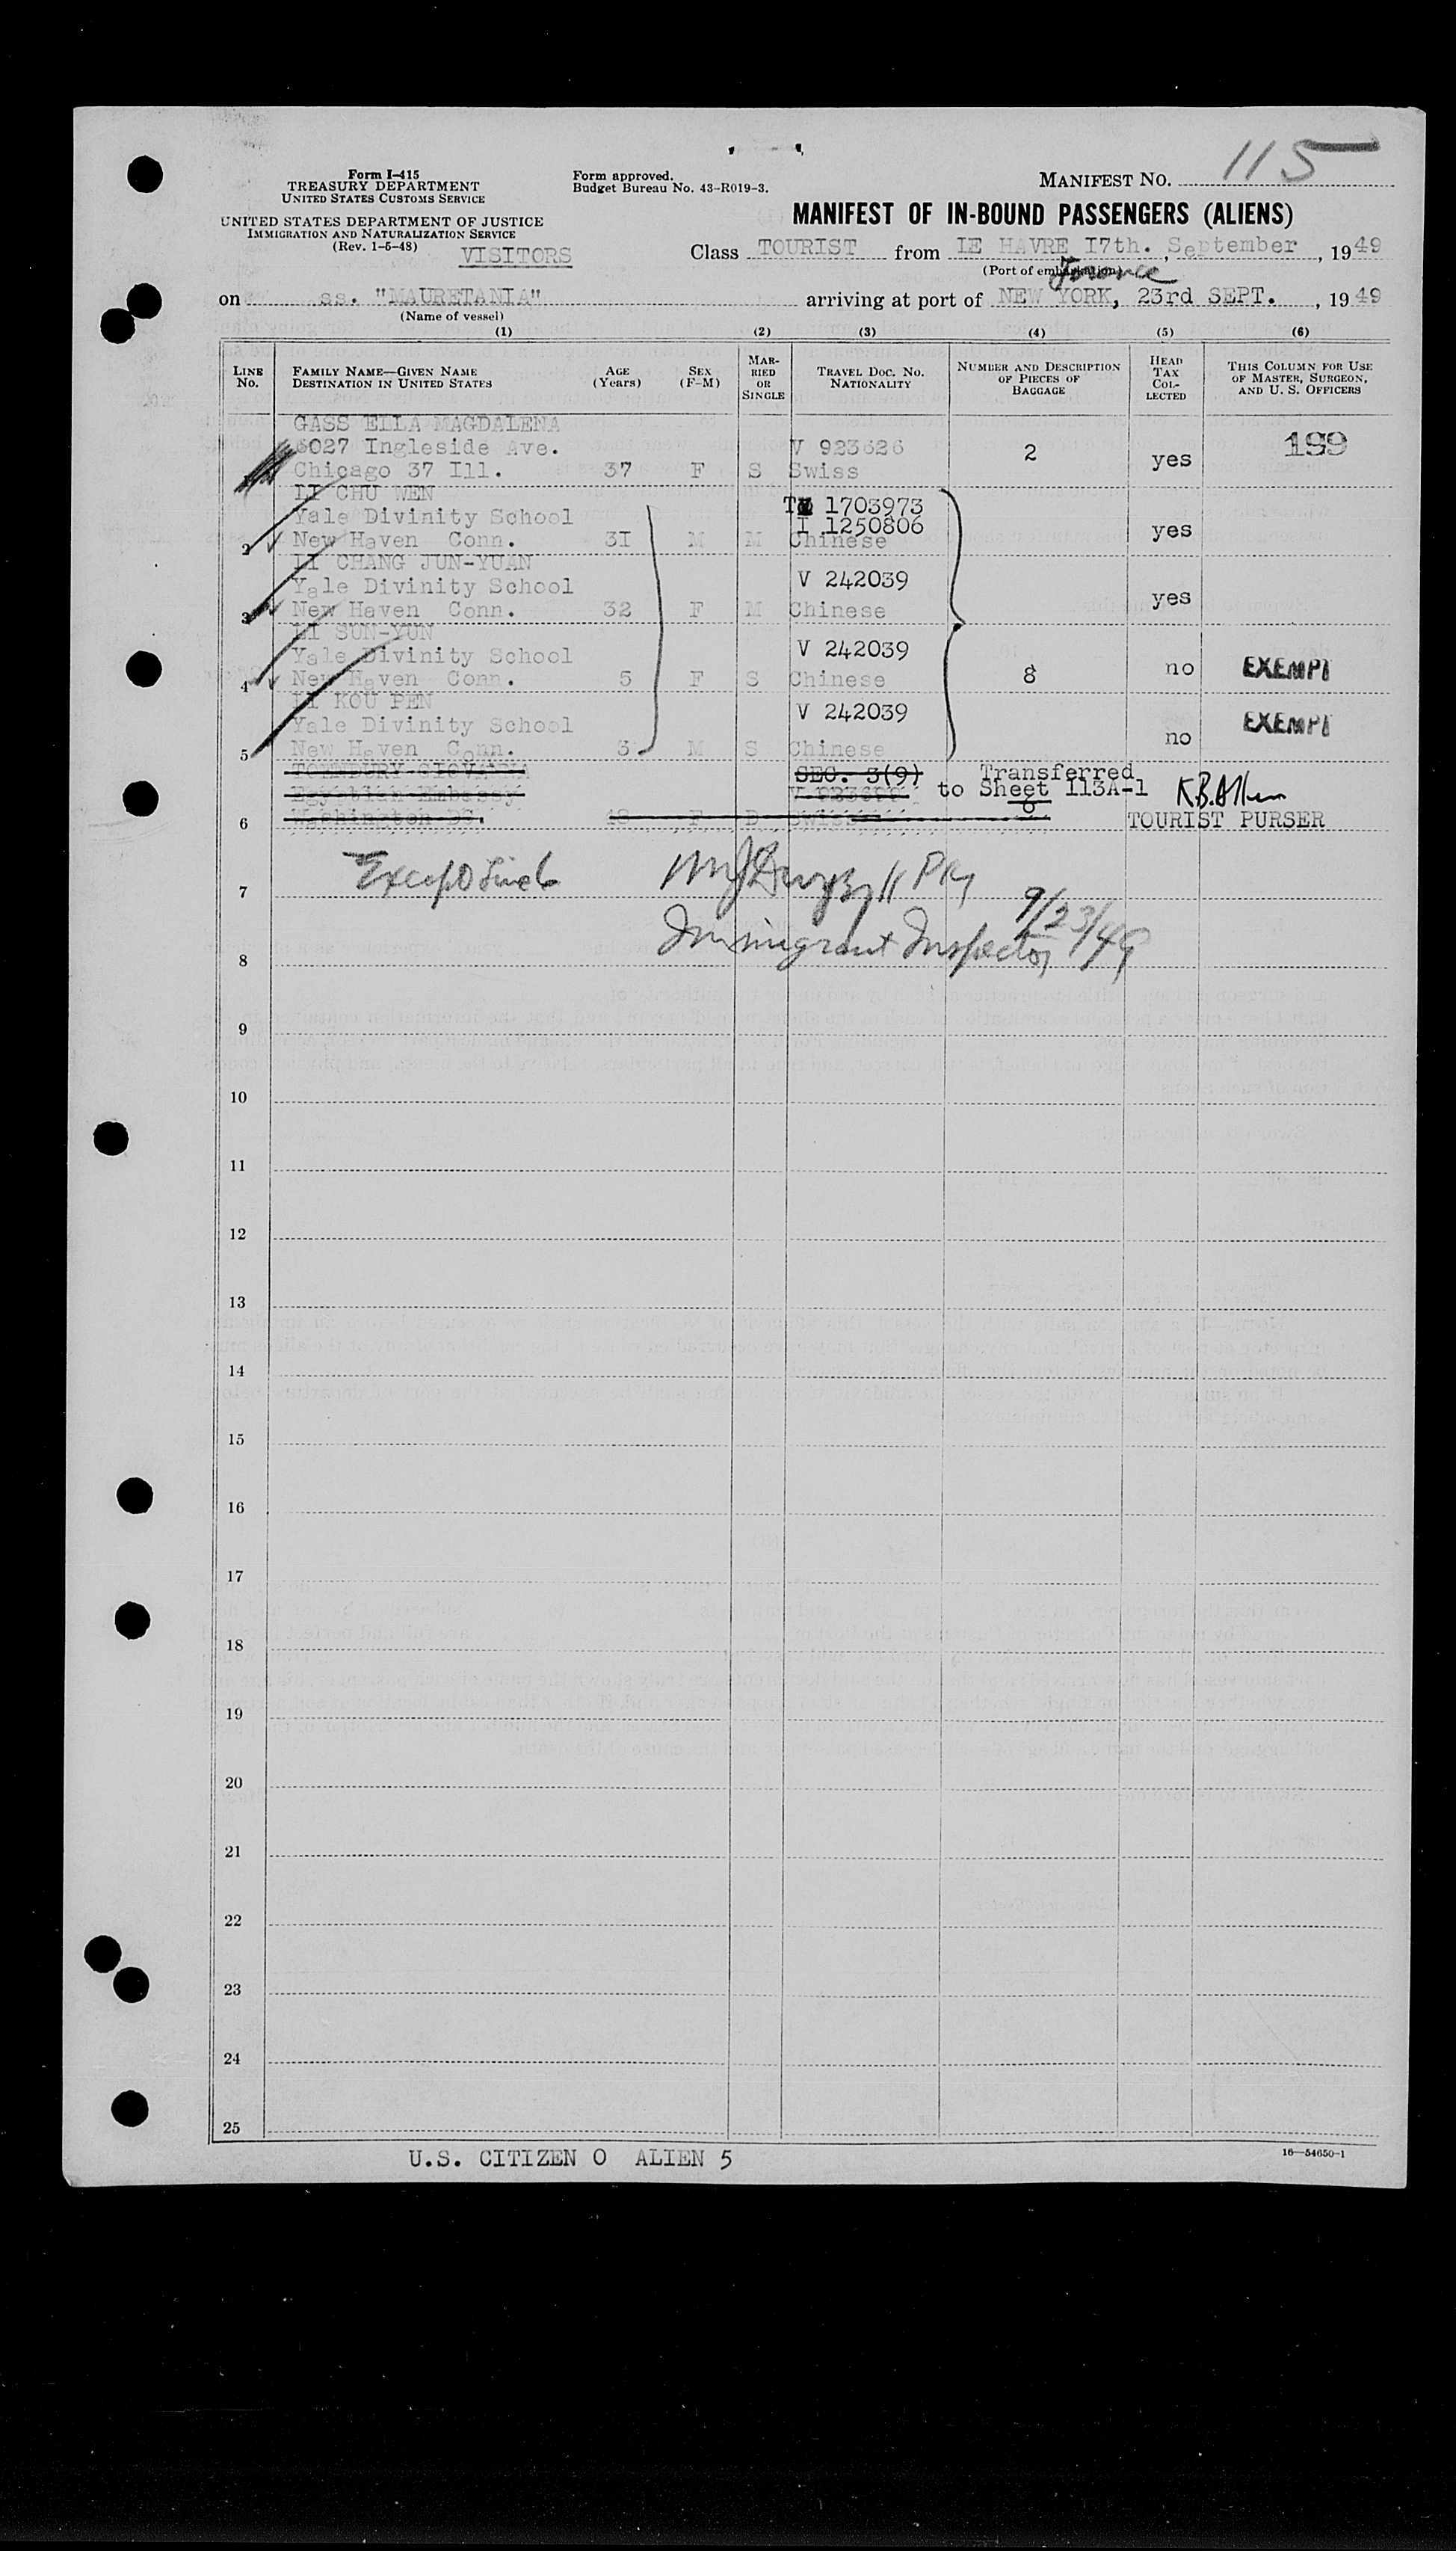 Form I-415
TREASURY DEPARTMENT
UNITED STATES CUSTOMS SERVICE
UNITED STATES DEPARTMENT OF JUSTICE
IMMIGRATION AND NATURALIZATION SERVICE
(Rev. 1-5-48)
VISITORS
Form approved.
Budget Bureau No. 43-R019-3.
MANIFEST NO. 115
MANIFEST OF IN-BOUND PASSENGERS (ALIENS)
Class TOURIST from LE HAVRE I7th. September, 1949
(Port of embarkation)
France
on ss. "MAURETANIA" arriving at port of NEW YORK, 23rd SEPT., 1949
(Name of vessel)
(1) (2) (3) (4) (5) (6)
LINE No.
FAMILY NAME—GIVEN NAME
DESTINATION IN UNITED STATES
AGE (Years)
SEX (F-M)
MARRIED OR SINGLE
TRAVEL DOC. NO.
NATIONALITY
NUMBER AND DESCRIPTION OF PIECES OF BAGGAGE
HEAD TAX COLLECTED
THIS COLUMN FOR USE OF MASTER, SURGEON, AND U. S. OFFICERS
GASS ELLA MAGDALENA
6027 Ingleside Ave. V 923626 2 199
Chicago 37 Ill. 37 F S Swiss yes
LI CHU WEN 1703973
Yale Divinity School I 1250806
2 New Haven Conn. 3I M M Chinese yes
LI CHANG JUN-YUAN
Yale Divinity School V 242039
3 New Haven Conn. 32 F M Chinese yes
LI SUN-YUN
Yale Divinity School V 242039
4 New Haven Conn. 5 F S Chinese 8 no EXEMPT
LI KOU PEN
Yale Divinity School V 242039 EXEMPT
5 New Haven Conn. 3 M S Chinese no
SEC. 3(9) Transferred
Egyptian Embassy to Sheet 113A-1 K.B. Allen
6 Washington DC. F D Swiss TOURIST PURSER
7 Except Line 6
8 Immigrant Inspector 9/23/49
9
10
11
12
13
14
15
16
17
18
19
20
21
22
23
24
25
U.S. CITIZEN O ALIEN 5
16—54650-1